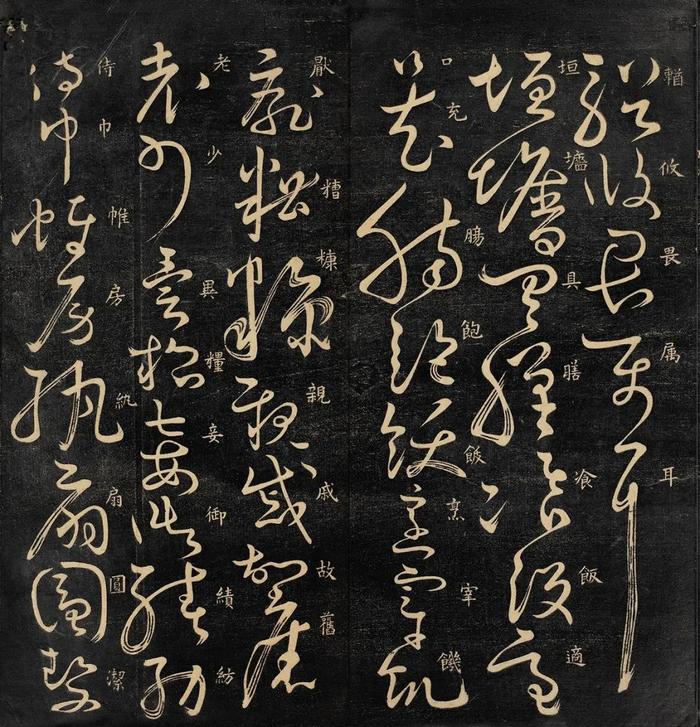 輶攸畏属耳
垣墻具膳飡飯適
口充腸飽飫烹宰饑
厭糟糠親戚故舊
老少異糧妾御績紡
侍巾帷房紈扇圓潔